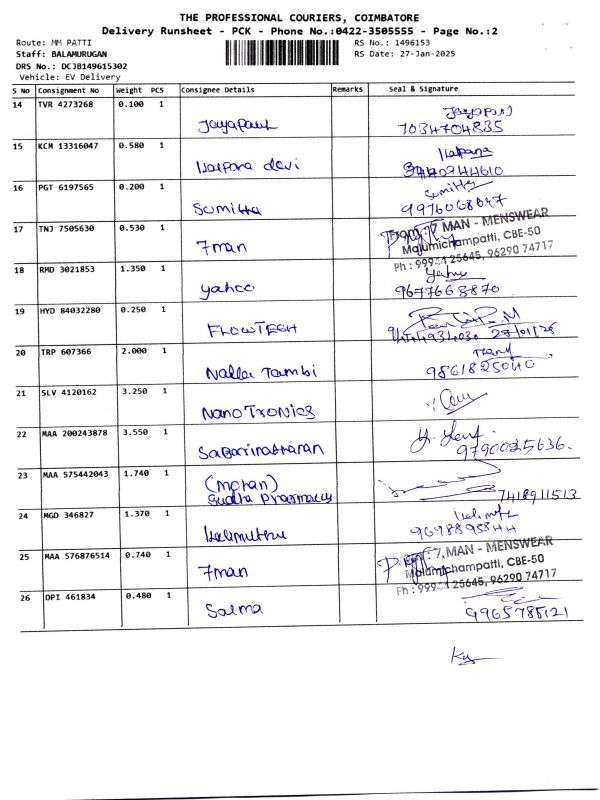 THE PROFESSIONAL COURIERS, COIMBATORE
Delivery Runsheet - PCK - Phone No.:0422-3505555 - Page No.:2
Route: MM PATTI RS No.: 1496153
Staff: BALAMURUGAN RS Date: 27-Jan-2025
DRS No.: DCJB149615302
Vehicle: EV Delivery
S No Consignment No Weight PCS Consignee Details Remarks Seal & Signature
14 TVR 4273268 0.100 1 Jayapaul
7034704835
15 KCM 13316047 0.580 1 Kalpana devi Kalpana
16 PGT 6197565 0.200 1 Sumitha Sumitha
9976068047
17 TNJ 7505630 0.530 1 7man From : 7 MAN - MENSWEAR
Malumichampatti, CBE-50
Ph : 25645, 96290 74717
18 RMD 3021853 1.350 1 yahoo
9677663870
19 HYD 84032280 0.250 1 FLOWTECH
27/01/25
20 TRP 607366 2.000 1 Nalla Tambi
9861825040
21 SLV 4120162 3.250 1 NanoTronics
22 MAA 200243878 3.550 1 Sabarinatharan
9790025636.
23 MAA 575442043 1.740 1 (mohan)
Sudha Pharmacy 7418911513
24 MGD 346827 1.370 1 Kalimuthu
9698895844
25 MAA 576876514 0.740 1 7man From : 7 MAN - MENSWEAR
Malumichampatti, CBE-50
Ph : 25645, 96290 74717
26 DPI 461834 0.480 1 Salma
9965785121